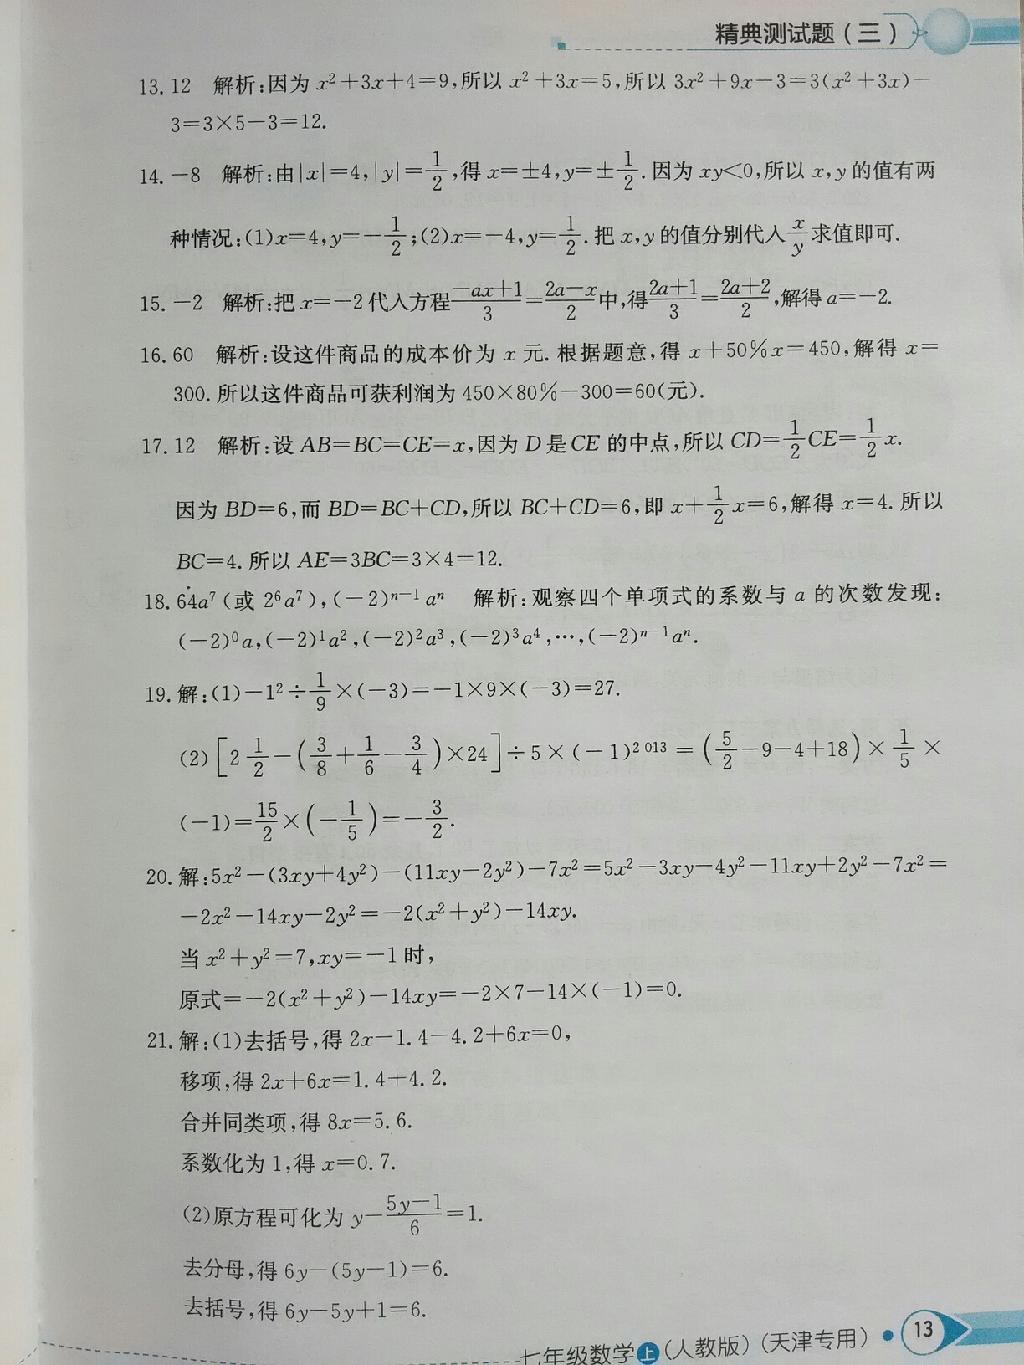 精典测试题(三)
13. 12 解析:因为 x²+3x+4=9,所以 x²+3x=5,所以 3x²+9x-3=3(x²+3x)-
3=3×5-3=12.
14. -8 解析:由|x|=4,|y|=1/2,得 x=±4,y=±1/2.因为 xy<0,所以 x,y 的值有两
种情况:(1)x=4,y=-1/2;(2)x=-4,y=1/2.把 x,y 的值分别代入 x/y 求值即可.
15. -2 解析:把 x=-2 代入方程 (-ax+1)/3=(2a-x)/2 中,得 (2a+1)/3=(2a+2)/2,解得 a=-2.
16. 60 解析:设这件商品的成本价为 x 元.根据题意,得 x+50%x=450,解得 x=
300.所以这件商品可获利润为 450×80%-300=60(元).
17. 12 解析:设 AB=BC=CE=x,因为 D 是 CE 的中点,所以 CD=1/2CE=1/2x.
因为 BD=6,而 BD=BC+CD,所以 BC+CD=6,即 x+1/2x=6,解得 x=4.所以
BC=4.所以 AE=3BC=3×4=12.
18. 64a⁷(或 2⁶a⁷),(-2)ⁿ⁻¹aⁿ 解析:观察四个单项式的系数与 a 的次数发现:
(-2)⁰a,(-2)¹a²,(-2)²a³,(-2)³a⁴,…,(-2)ⁿ⁻¹aⁿ.
19. 解:(1)-1²÷1/9×(-3)=-1×9×(-3)=27.
(2)[2 1/2-(3/8+1/6-3/4)×24]÷5×(-1)²⁰¹³=(5/2-9-4+18)×1/5×
(-1)=15/2×(-1/5)=-3/2.
20. 解:5x²-(3xy+4y²)-(11xy-2y²)-7x²=5x²-3xy-4y²-11xy+2y²-7x²=
-2x²-14xy-2y²=-2(x²+y²)-14xy.
当 x²+y²=7,xy=-1 时,
原式=-2(x²+y²)-14xy=-2×7-14×(-1)=0.
21. 解:(1)去括号,得 2x-1.4-4.2+6x=0,
移项,得 2x+6x=1.4+4.2.
合并同类项,得 8x=5.6.
系数化为 1,得 x=0.7.
(2)原方程可化为 y-(5y-1)/6=1.
去分母,得 6y-(5y-1)=6.
去括号,得 6y-5y+1=6.
七年级数学 上 (人教版)(天津专用) 13